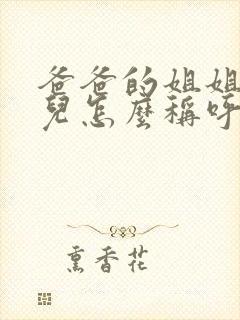 爸爸的姐姐
兒怎麼稱呼
熏香花